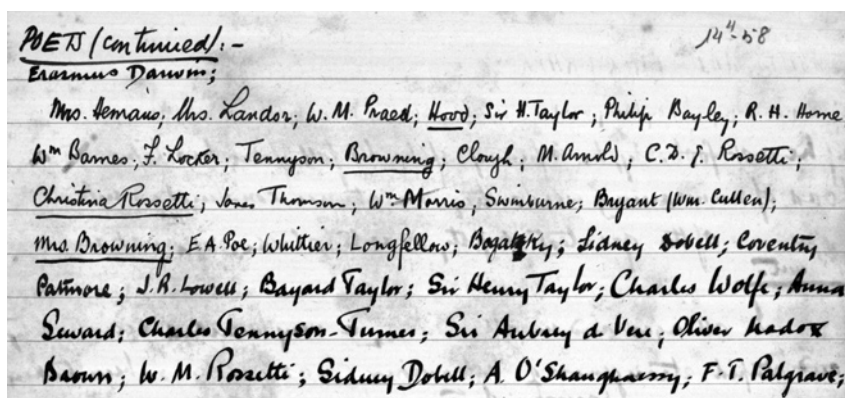 POETS (continued):- 14-4-58
Erasmus Darwin;
Mrs. Hemans; Mrs. Landor; W. M. Praed; Hood; Sir H. Taylor; Philip Bayley; R. H. Horne
Wm Barnes; F. Locker; Tennyson; Browning; Clough; M. Arnold; C. D. G. Rossetti;
Christina Rossetti; James Thomson; Wm Morris; Swinburne; Bryant (Wm. Cullen);
Mrs. Browning; E. A. Poe; Whittier; Longfellow; Sidney Dobell; Coventry
Patmore; J. R. Lowell; Bayard Taylor; Sir Henry Taylor; Charles Wolfe; Anna
Seward; Charles Tennyson-Turner; Sir Aubrey de Vere; Oliver Madox
Brown; W. M. Rossetti; Sidney Dobell; A. O'Shaughnessy; F. T. Palgrave;